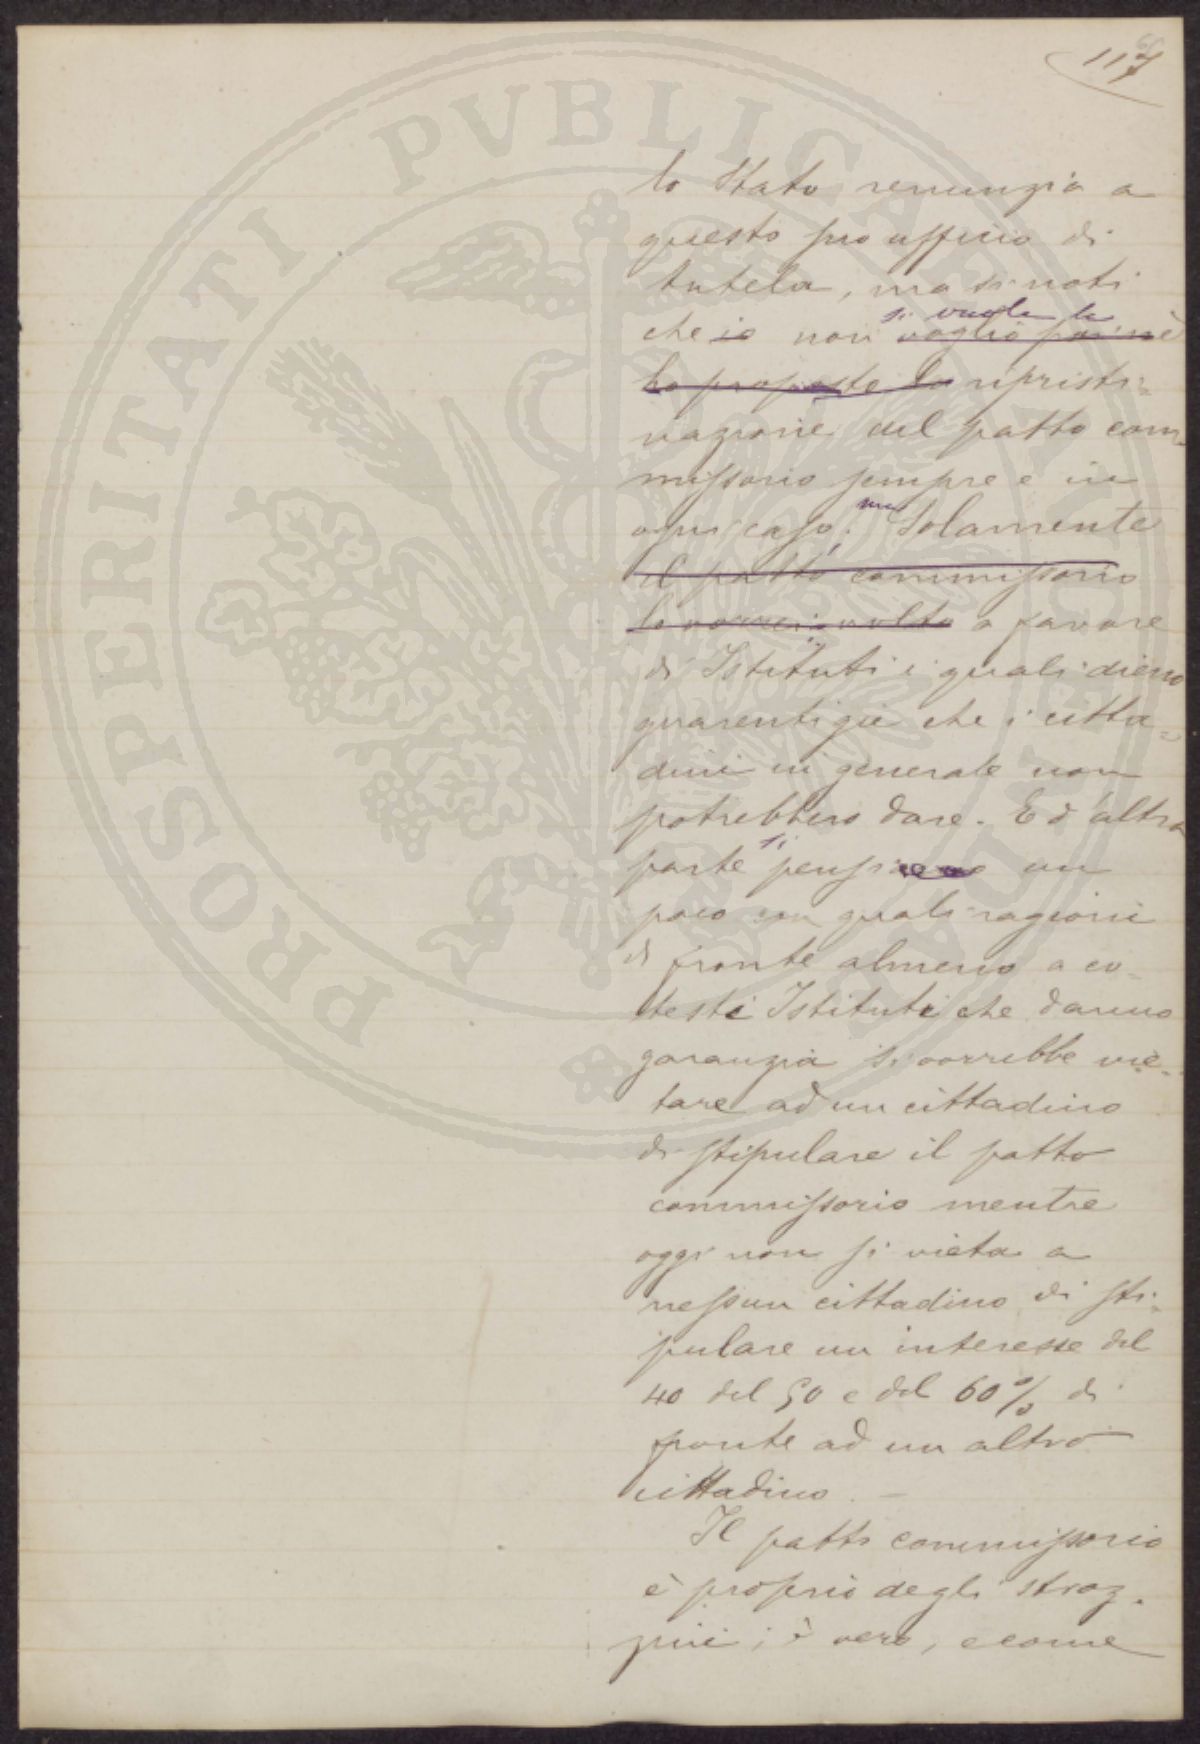 117
lo Stato renunzia a
questo suo ufficio di
tutela, ma si noti
si vuole la
che io non voglio far nè
ho proposte la ripristi-
nazione del patto com-
missorio sempre e in
ogni caso, ma Solamente
il patto commissorio
lo vorrei volto a favore
di Istituti i quali dieno
guarentigie che i citta-
dini in generale non
potrebbero dare. Ed altra
parte si pensi un
poco con quali ragioni
di fronte almeno a co-
testi Istituti che danno
garanzia si vorrebbe vie-
tare ad un cittadino
di stipulare il patto
commissorio mentre
oggi non si vieta a
nessun cittadino di sti-
pulare un interesse del
40 del 50 e del 60% di
fronte ad un altro
cittadino. —
Il patto commissorio
è proprio degli stroz-
zini; è vero, e come
PROSPERITATI PVBLICAE